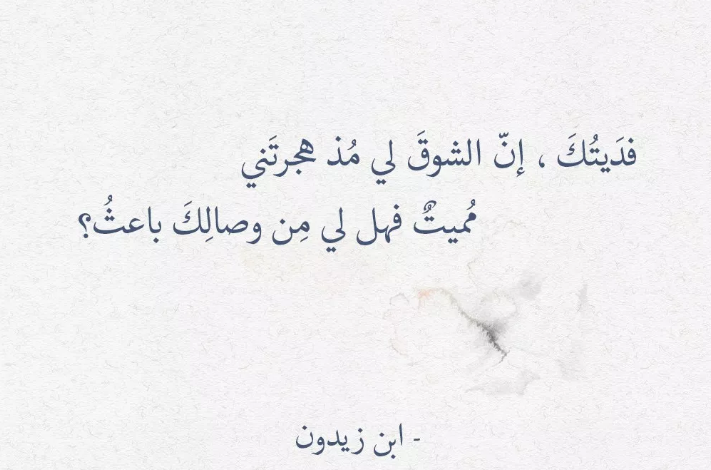 فدَيتُكَ ، إنّ الشوقَ لي مُذ هجرتَني
مُميتٌ فهل لي مِن وصالِكَ باعثُ؟
- ابن زيدون